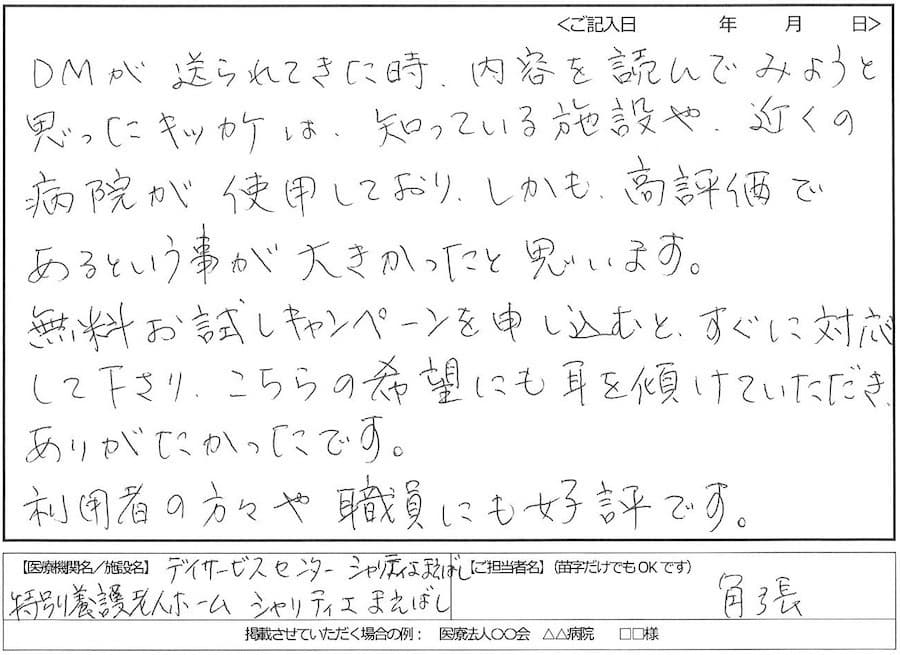 <ご記入日　　　年　　月　　日>
DMが送られてきた時、内容を読んでみようと
思ったキッカケは、知っている施設や、近くの
病院が使用しており、しかも、高評価で
あるという事が大きかったと思います。
無料お試しキャンペーンを申し込むと、すぐに対応
して下さり、こちらの希望にも耳を傾けていただき、
ありがたかったです。
利用者の方々や職員にも好評です。
【医療機関名／施設名】 デイサービスセンター シャリティエまえばし
特別養護老人ホーム シャリティエまえばし
【ご担当者名】(苗字だけでもOKです)
角張
掲載させていただく場合の例：　医療法人〇〇会　△△病院　　□□様